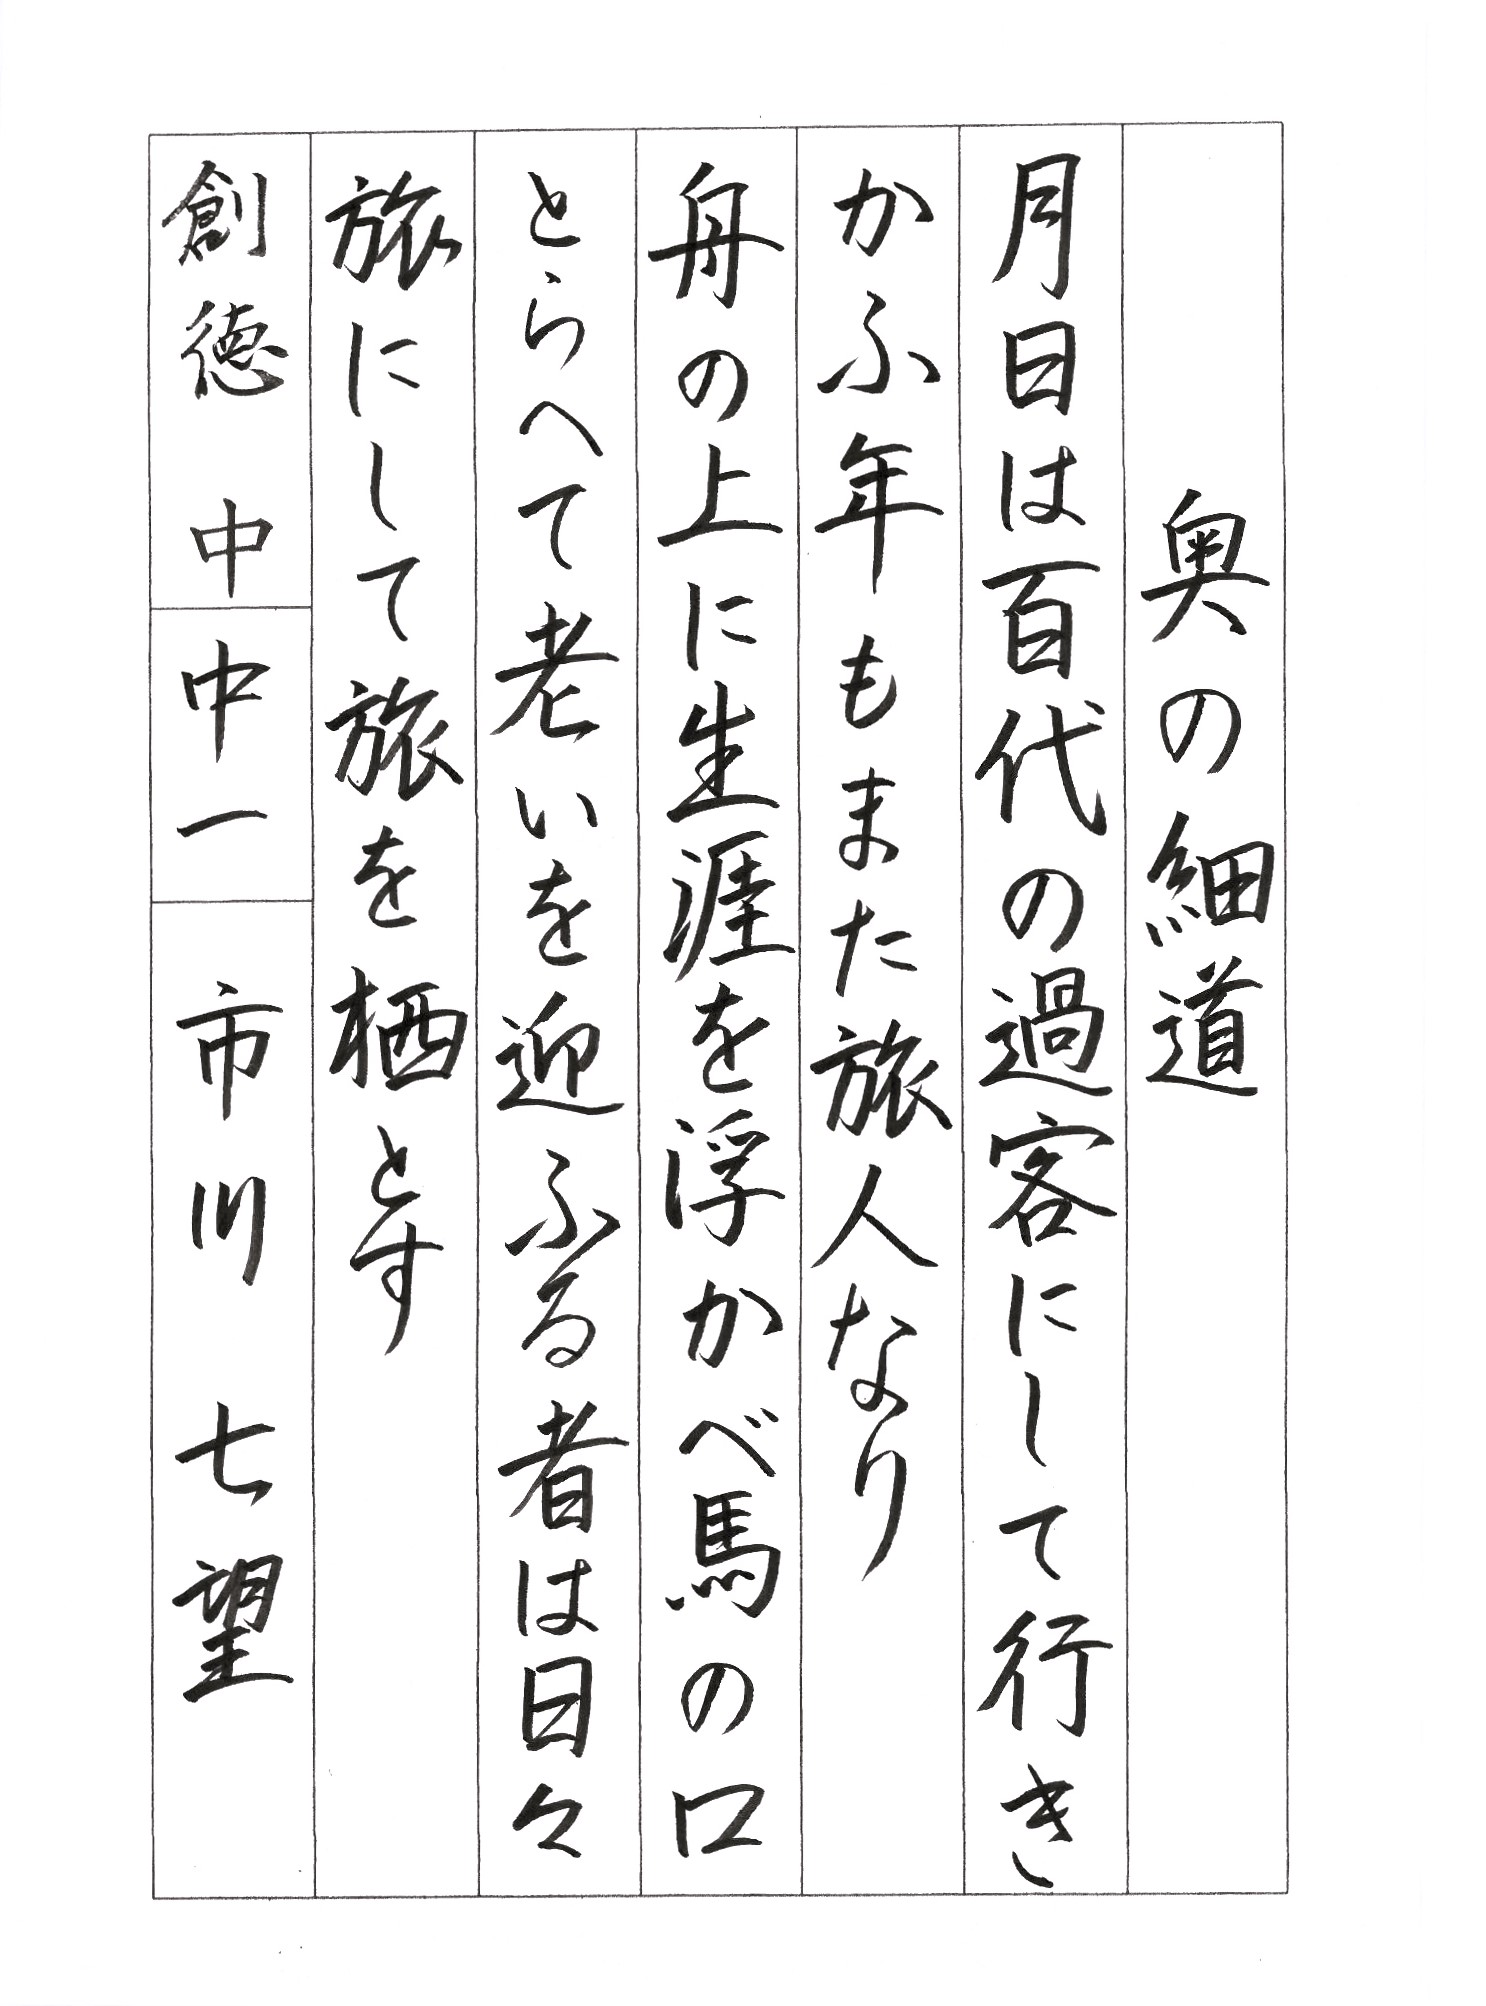 奥の細道
月日は百代の過客にして行き
かふ年もまた旅人なり
舟の上に生涯を浮かべ馬の口
とらへて老いを迎ふる者は日々
旅にして旅を栖とす
創徳中 中一 市川七望